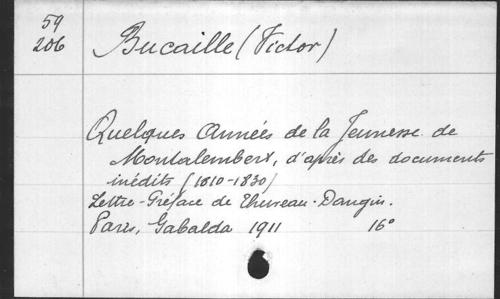 59
206
Bucaille (Victor)
Quelques Années de la Jeunesse de
Montalembert, d'après des documents
inédits (1810-1830)
Lettre-Préface de Thureau-Dangin.
Paris, Gabalda 1911 16°